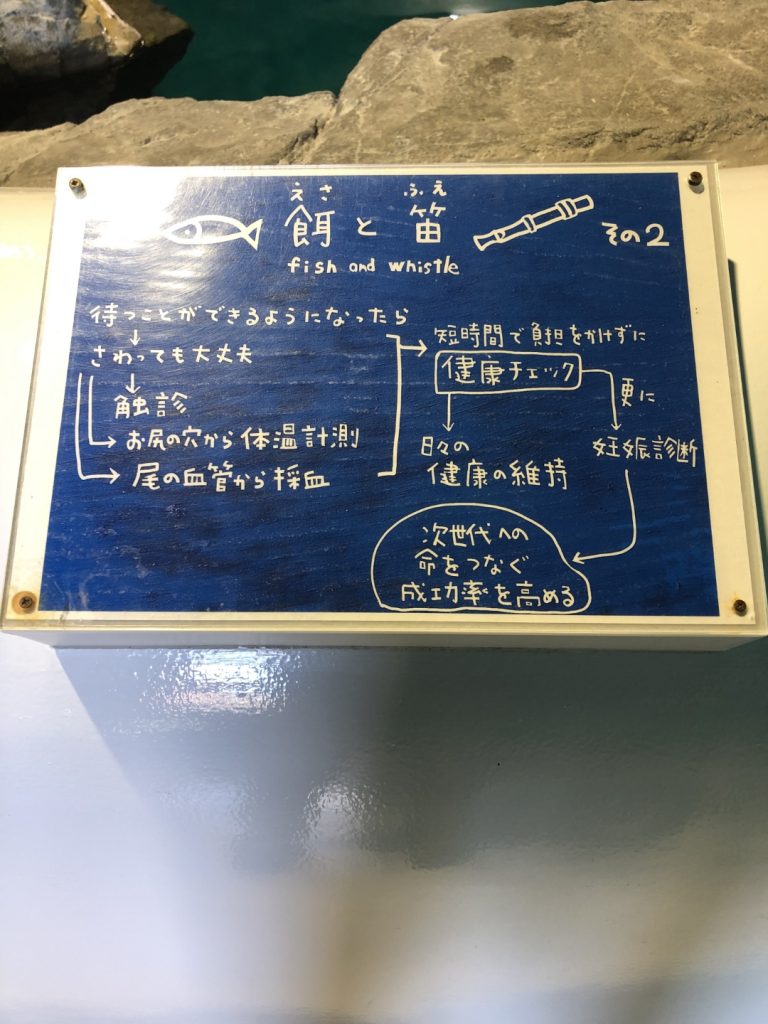 えさ ふえ
餌と笛 その2
fish and whistle
待つことができるようになったら
さわっても大丈夫
触診
お尻の穴から体温計測
尾の血管から採血
短時間で負担をかけずに
健康チェック
更に
日々の
健康の維持
妊娠診断
次世代への
命をつなぐ
成功率を高める